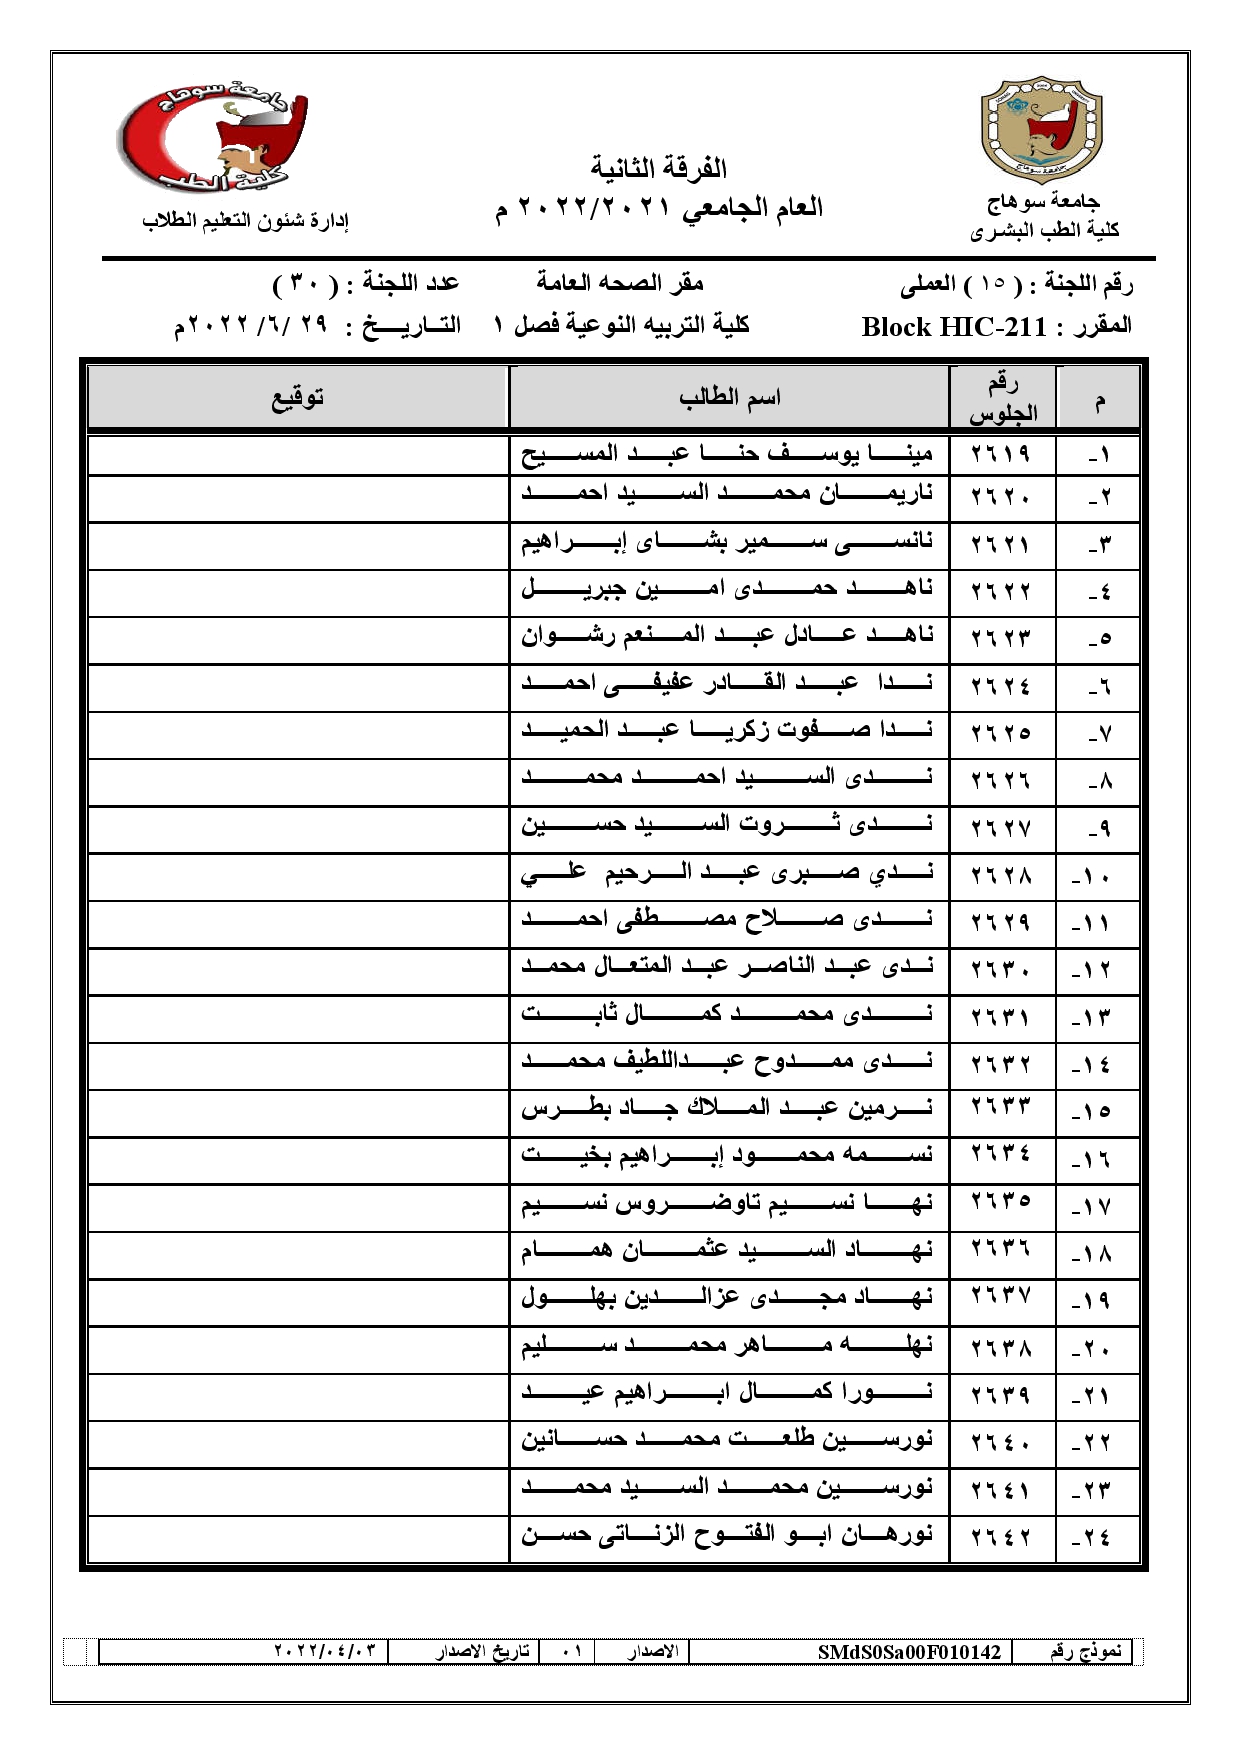 جامعة سوهاج
كلية الطب
جامعة سوهاج
الفرقة الثانية
العام الجامعي ٢٠٢٢/٢٠٢١ م
جامعة سوهاج
كلية الطب البشرى
إدارة شئون التعليم الطلاب
رقم اللجنة : ( ١٥ ) العملى مقر الصحه العامة عدد اللجنة : ( ٣٠ )
المقرر : Block HIC-211 كلية التربيه النوعية فصل ١ التــاريــــخ : ٢٩ /٦/ ٢٠٢٢م
م رقم الجلوس اسم الطالب توقيع
١- ٢٦١٩ مينا يوسف حنا عبد المسيح
٢- ٢٦٢٠ ناريمان محمد السيد احمد
٣- ٢٦٢١ نانسى سمير بشاى إبراهيم
٤- ٢٦٢٢ ناهد حمدى امين جبريل
٥- ٢٦٢٣ ناهد عادل عبد المنعم رشوان
٦- ٢٦٢٤ ندا عبد القادر عفيفى احمد
٧- ٢٦٢٥ ندا صفوت زكريا عبد الحميد
٨- ٢٦٢٦ ندى السيد احمد محمد
٩- ٢٦٢٧ ندى ثروت السيد حسين
١٠- ٢٦٢٨ ندي صبرى عبد الرحيم علي
١١- ٢٦٢٩ ندى صلاح مصطفى احمد
١٢- ٢٦٣٠ ندى عبد الناصر عبد المتعال محمد
١٣- ٢٦٣١ ندى محمد كمال ثابت
١٤- ٢٦٣٢ ندى ممدوح عبداللطيف محمد
١٥- ٢٦٣٣ نرمين عبد الملاك جاد بطرس
١٦- ٢٦٣٤ نسمه محمود إبراهيم بخيت
١٧- ٢٦٣٥ نها نسيم تاوضروس نسيم
١٨- ٢٦٣٦ نهاد السيد عثمان همام
١٩- ٢٦٣٧ نهاد مجدى عزالدين بهلول
٢٠- ٢٦٣٨ نهله ماهر محمد سليم
٢١- ٢٦٣٩ نورا كمال ابراهيم عيد
٢٢- ٢٦٤٠ نورسين طلعت محمد حسانين
٢٣- ٢٦٤١ نورسين محمد السيد محمد
٢٤- ٢٦٤٢ نورهان ابو الفتوح الزناتى حسن
نموذج رقم SMdS0Sa00F010142 الاصدار ٠١ تاريخ الاصدار ٢٠٢٢/٠٤/٠٣